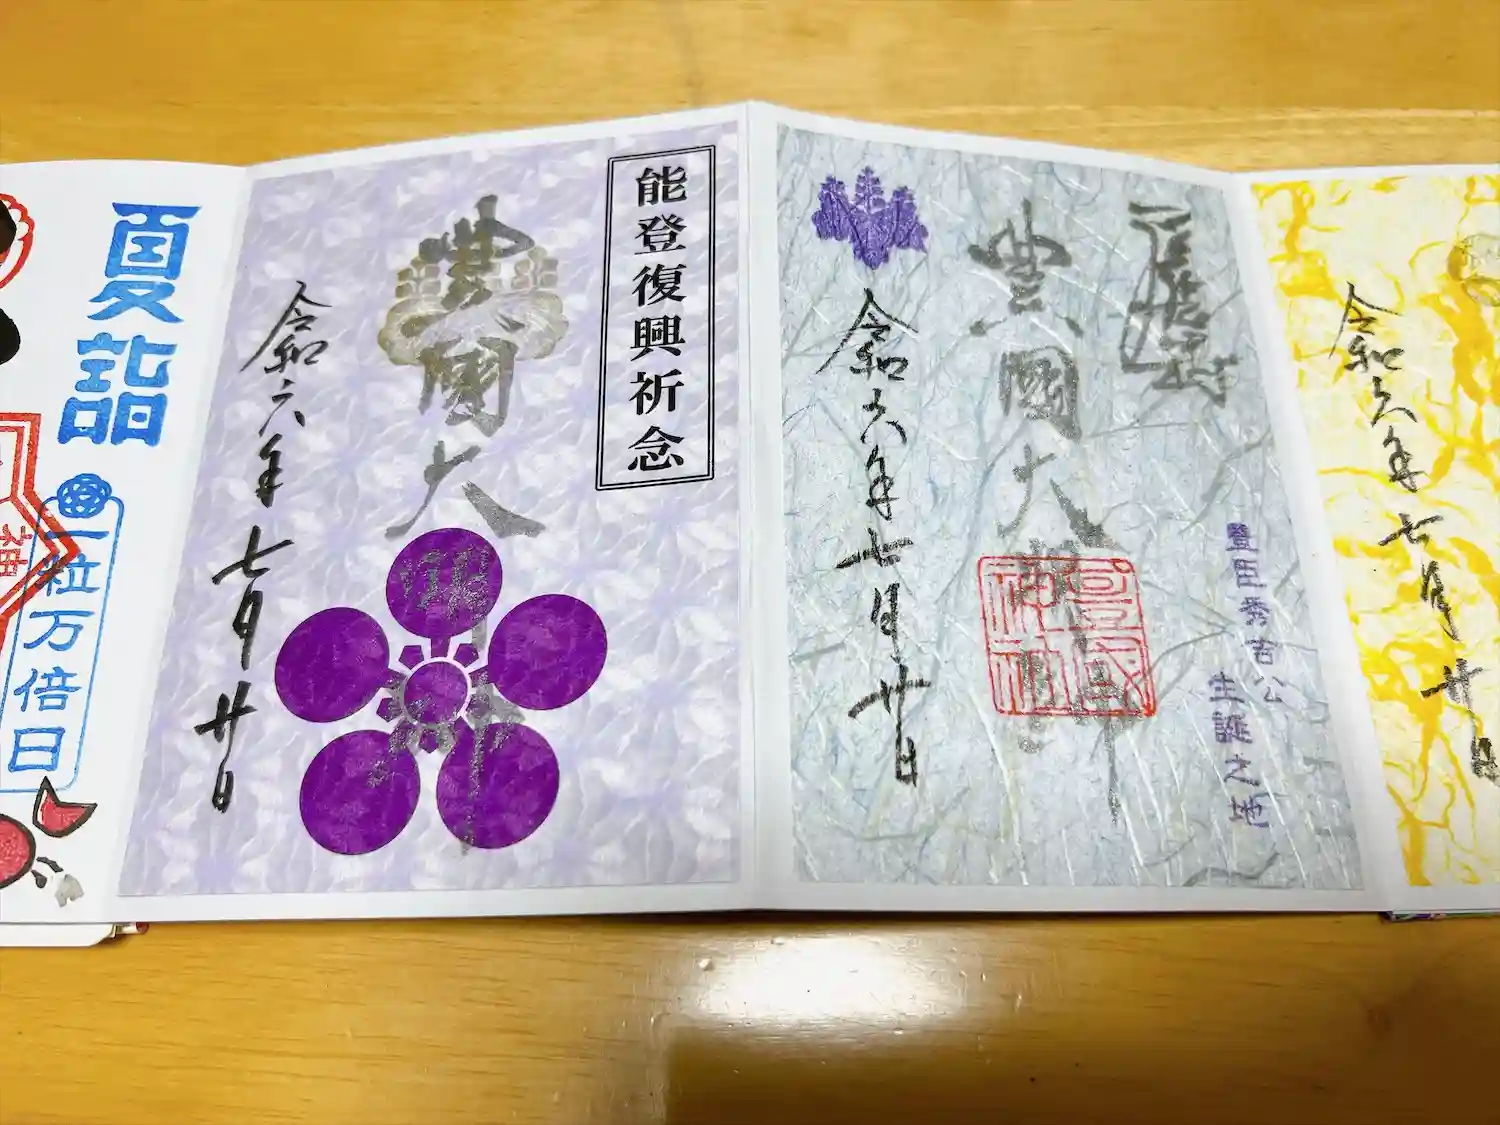 夏詣
一粒万倍日
神
能登復興祈念
豊國大明神
令和六年七月廿日
豊國大明神
豊臣秀吉公
生誕之地
豊國神社
令和六年七月廿日
令和六年七月廿日